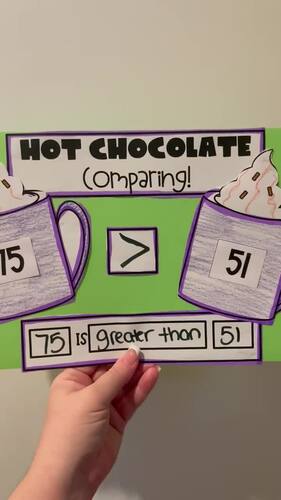 HOT CHOCOLATE
Comparing!
75 > 51
75 is greater than 51